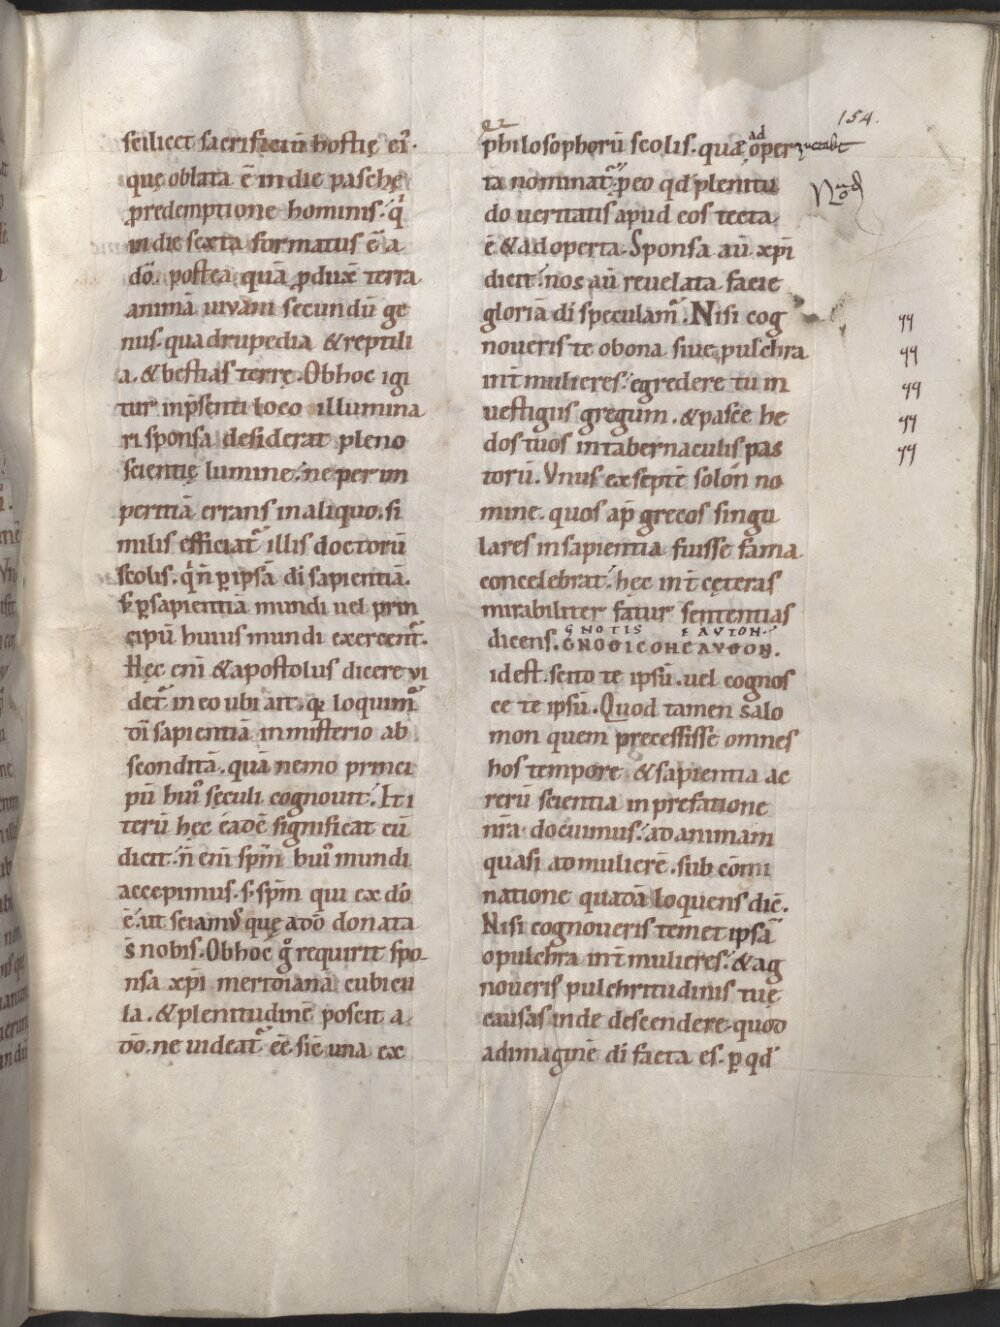 154.
scilicet sacrificiū hostię ei᷒.
quę oblata ē in die paschę
p̱redemptione hominis. q̇
in die sexta formatus ē a
dō. postea quā p̱duxē terra
animā uiuam secundū ge
nus. quadrupedia & reptili
a. & bestias terrę. Ob hoc igi
tur inp̄senti loco illumina
ri sponsa desiderat pleno
scientię lumine. ne per im
peritiā errans in aliquo. si
milis efficiat᷑ illis doctorū
scolis. q̇ n̄ ꝑ ipsā di sapientiā.
s; ꝑ sapientiā mundi uel prin
cipū huius mundi exercent᷑.
Hęc eni & apostolus dicere vi
det᷑ in eo ubi ait. qꝛ loquim᷑
di sapientiā in misterio ab
sconditā. quā nemo princi
pū hui᷒ sęculi cognouit. Iti
terū hęc eadē significat cū
dicit. n̄ eni sp̄m hui᷒ mundi
accepimus. s; sp̄m qui ex dō
ē. ut sciam᷒ quę a dō donata
s̄ nobis. Ob hoc g̊ requirit spo
nsa xp̄i meridiana cubicu
la. & plenitudinē poscit a
dō. ne uideat᷑ ēē sic una ex
philosophorū scolis. quæ ad oper
ta nominat᷑. p̱ eo qd̓ plenitu
do ueritatis apud eos tecta
ē & adoperta. Sponsa aū xp̄i
dicit. nos aū reuelata facie
gloriā di speculam᷑. Nisi cog
noueris te o bona siue pulchra
int̄ mulieres. egredere tu in
uestigiis gregum. & pasce he
dos tuos in tabernaculis pas
torū. Vnus ex septē solon no
mine. quos ap̄ grecos singu
lares in sapientia fuisse fama
concelebrat. hęc int̄ cęteras
mirabiliter fatur sententias
GNOTIS EAVTON.
dicens. GNOΘICOHCAYΘON.
id est. scito te ipsū. uel cognos
ce te ipsū. Quod tamen salo
mon quem precessisse omnes
hos tempore & sapientia ac
rerū scientia in prefatione
nr̄a docuimus. ad animam
quasi ad mulierē. sub cōmi
natione quadā loquens dic̄.
Nisi cognoueris temet ipsā
o pulchra int̄ mulieres. & ag
noueris pulchritudinis tuę
causas inde descendere. quod
ad imaginē di facta es. ꝑ qd̓